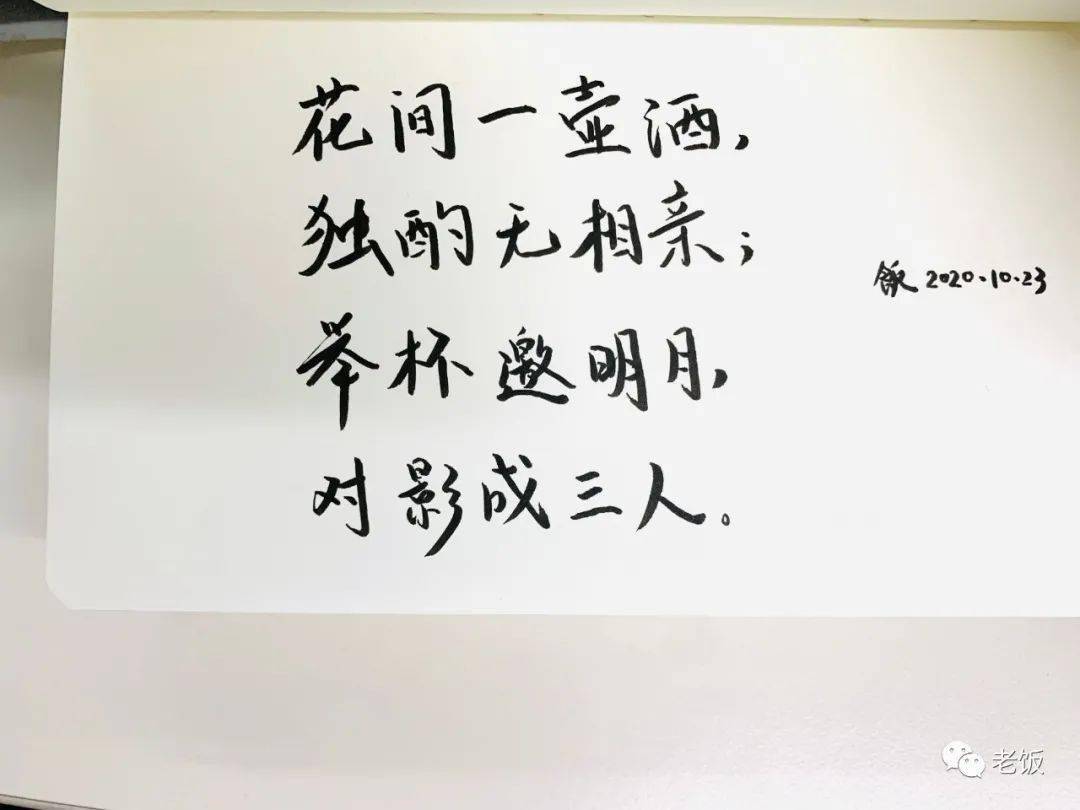 花间一壶酒，
独酌无相亲；
举杯邀明月，
对影成三人。
饭 2020.10.23
老饭